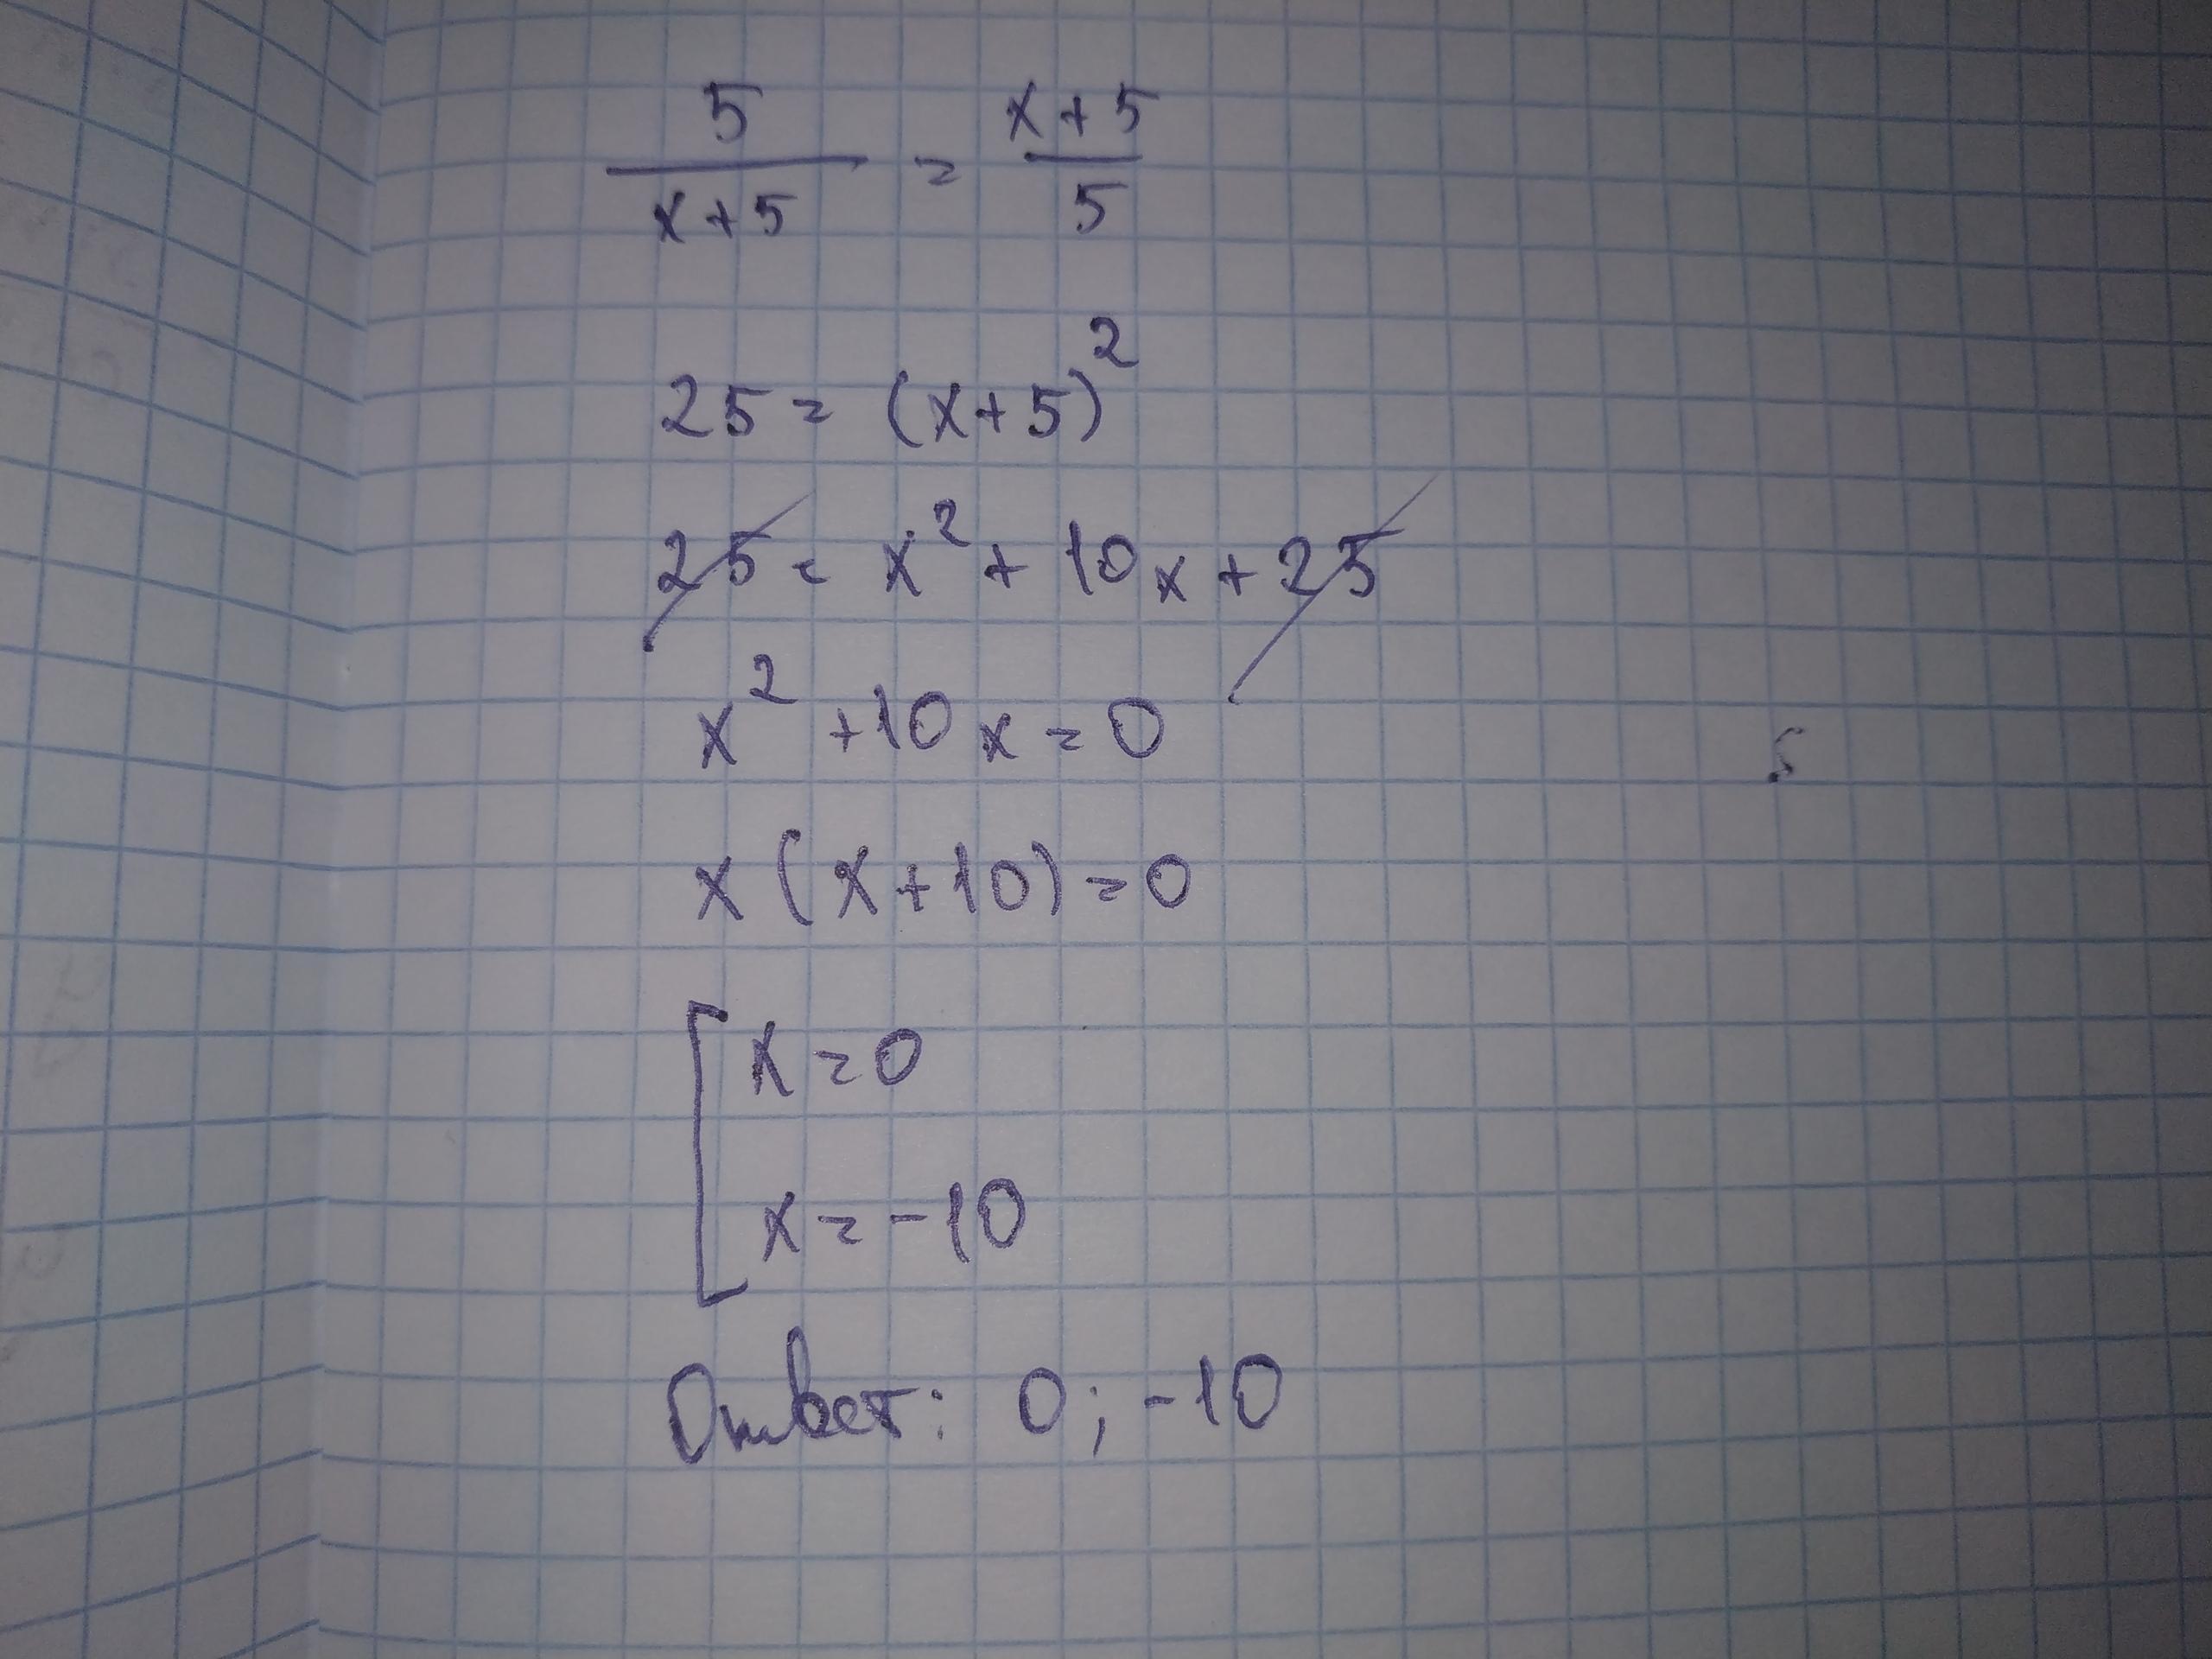 5/(x+5) = (x+5)/5
25 = (x+5)²
25 = x² + 10x + 25
x² + 10x = 0
x(x+10) = 0
[ x = 0
x = -10
Ответ: 0; -10